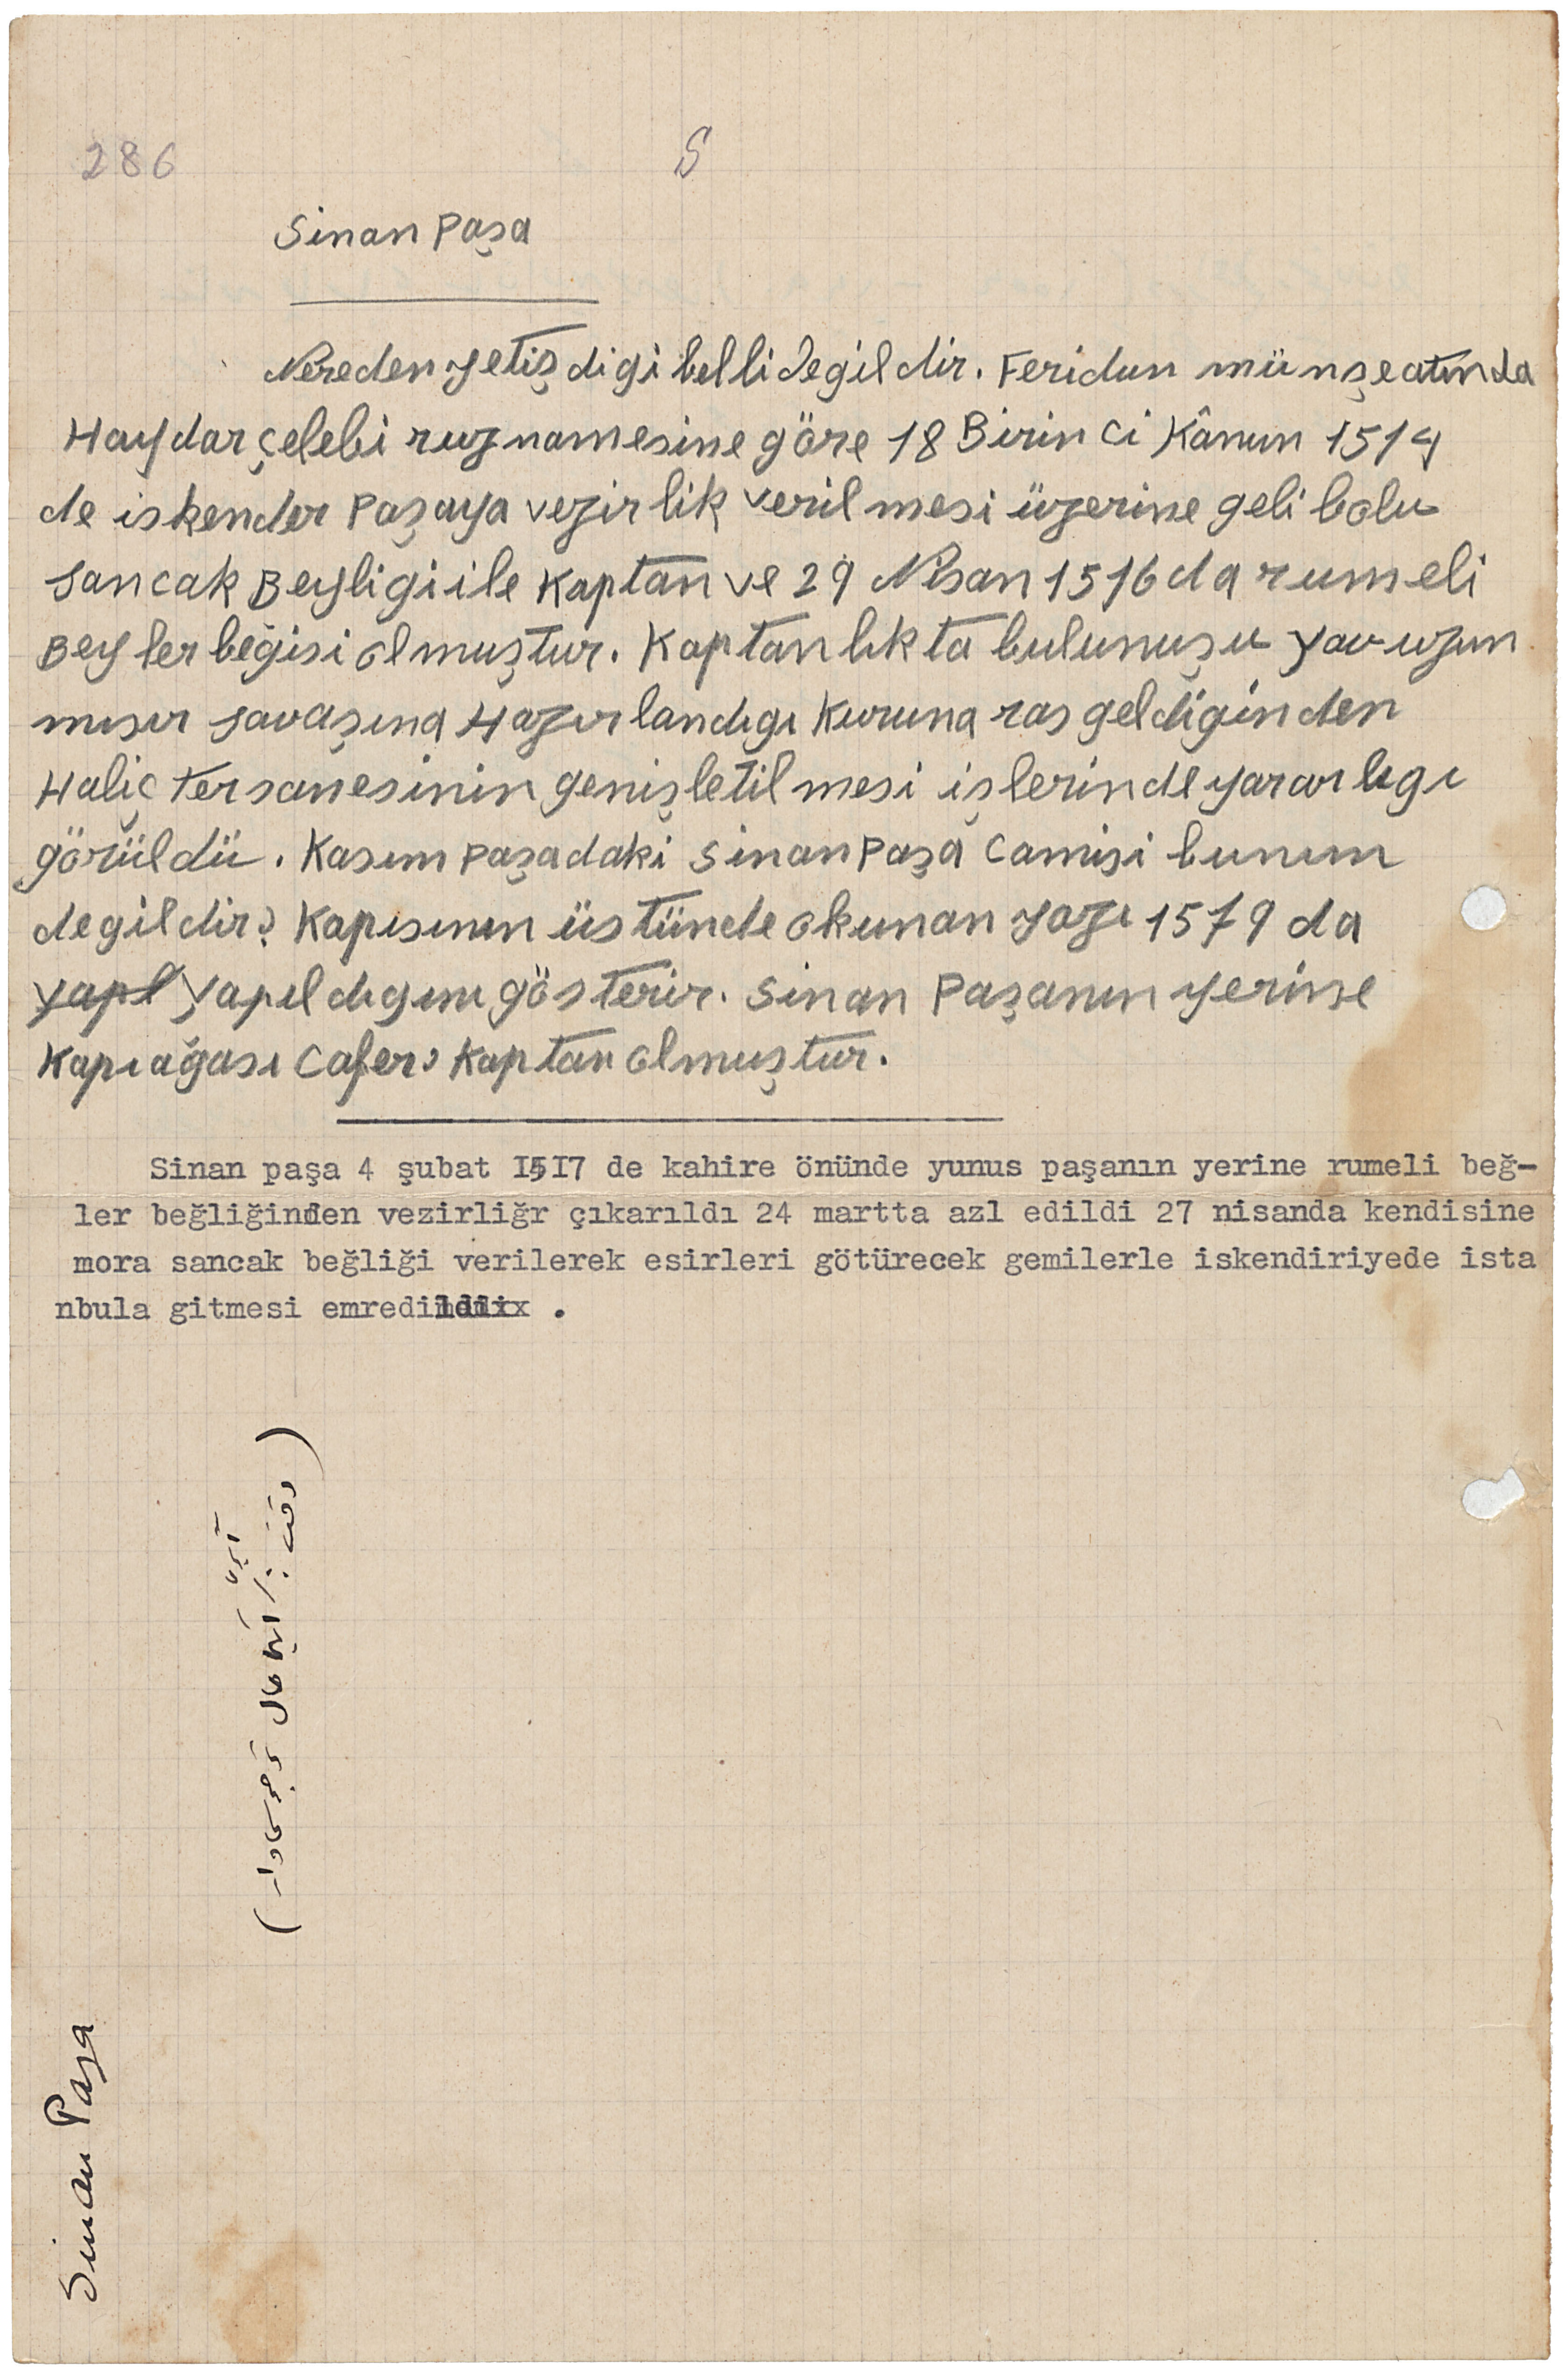 286
S
Sinan Paşa
Nereden yetişdigi belli degildir. Feridun münşeatında
Haydar çelebi ruznamesine göre 18 Birinci Kânun 1514
de iskender Paşaya vezirlik verilmesi üzerine geli bolu
Sancak Beyligi ile Kaptan ve 29 Nisan 1516 da rumeli
Beyler beğisi olmuştur. Kaptanlıkta bulunuşu Yavuzun
mısır savaşına Hazırlandıgı Kuruna ras geldiginden
Haliç Tersanesinin genişletilmesi işlerinde yararlıgı
görüldü. Kasım paşadaki Sinan Paşa Camisi bunun
degildir? Kapısının üstünde okunan yazı 1579 da
yapl yapıldıgını gösterir. Sinan Paşanın yerine
Kapıağası Cafer, Kaptan olmuştur.
Sinan paşa 4 şubat I5I7 de kahire önünde yunus paşanın yerine rumeli beğ-
ler beğliğinden vezirliğr çıkarıldı 24 martta azl edildi 27 nisanda kendisine
mora sancak beğliği verilerek esirleri götürecek gemilerle iskendiriyede ista
nbula gitmesi emredildi .
Sinan Paşa